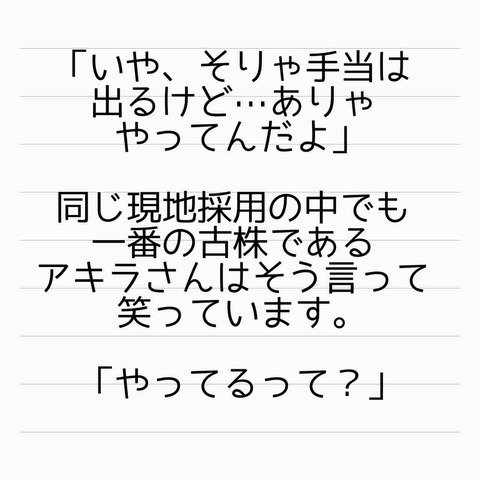 「いや、そりゃ手当は
出るけど…ありゃ
やってんだよ」
同じ現地採用の中でも
一番の古株である
アキラさんはそう言って
笑っています。
「やってるって？」